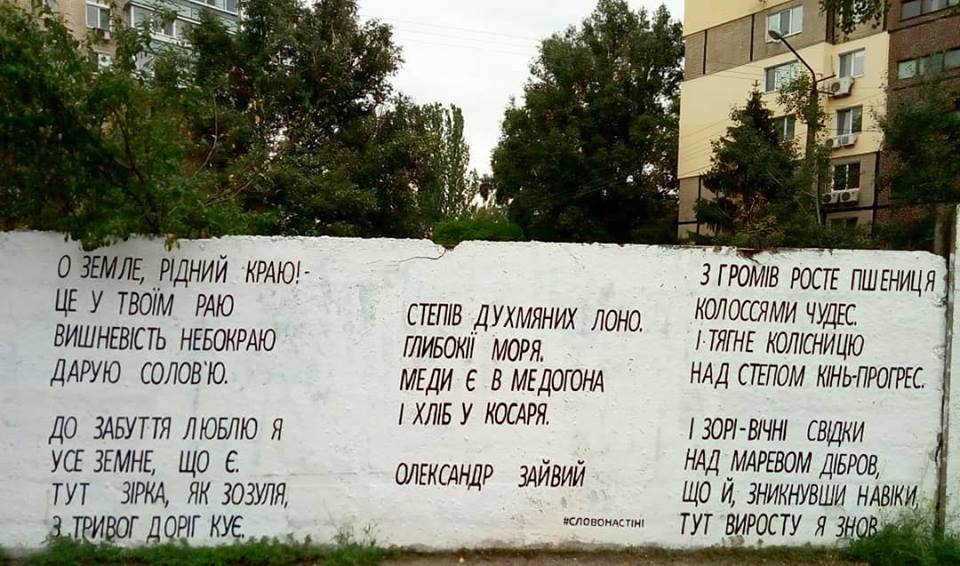 О ЗЕМЛЕ, РІДНИЙ КРАЮ!-
ЦЕ У ТВОЇМ РАЮ
ВИШНЕВІСТЬ НЕБОКРАЮ
ДАРУЮ СОЛОВ'Ю.
ДО ЗАБУТТЯ ЛЮБЛЮ Я
УСЕ ЗЕМНЕ, ЩО Є.
ТУТ ЗІРКА, ЯК ЗОЗУЛЯ,
З ТРИВОГ ДОРІГ КУЄ.
СТЕПІВ ДУХМЯНИХ ЛОНО.
ГЛИБОКІЇ МОРЯ.
МЕДИ Є В МЕДОГОНА
І ХЛІБ У КОСАРЯ.
ОЛЕКСАНДР ЗАЙВИЙ
#СЛОВОНАСТІНІ
З ГРОМІВ РОСТЕ ПШЕНИЦЯ
КОЛОССЯМИ ЧУДЕС.
І ТЯГНЕ КОЛІСНИЦЮ
НАД СТЕПОМ КІНЬ-ПРОГРЕС.
І ЗОРІ-ВІЧНІ СВІДКИ
НАД МАРЕВОМ ДІБРОВ,
ЩО Й, ЗНИКНУВШИ НАВІКИ,
ТУТ ВИРОСТУ Я ЗНОВ.